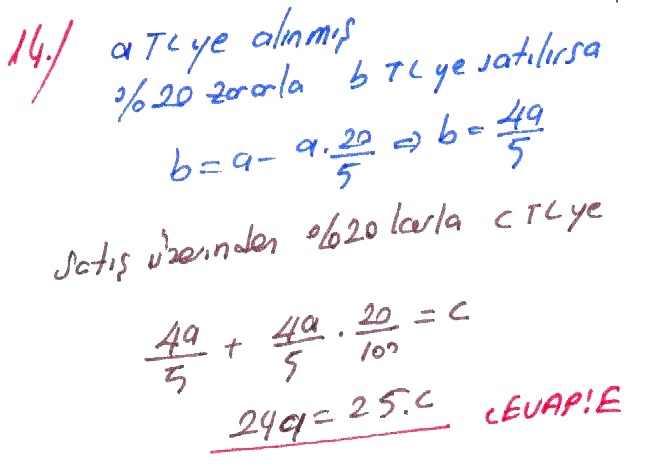 14.) a TL ye alınmış
%20 zararla b TL ye satılırsa
b = a - a . 20/5 ⇒ b = 4a/5
satış üzerinden %20 karla c TL ye
4a/5 + 4a/5 . 20/100 = c
24a = 25.c CEVAP!E